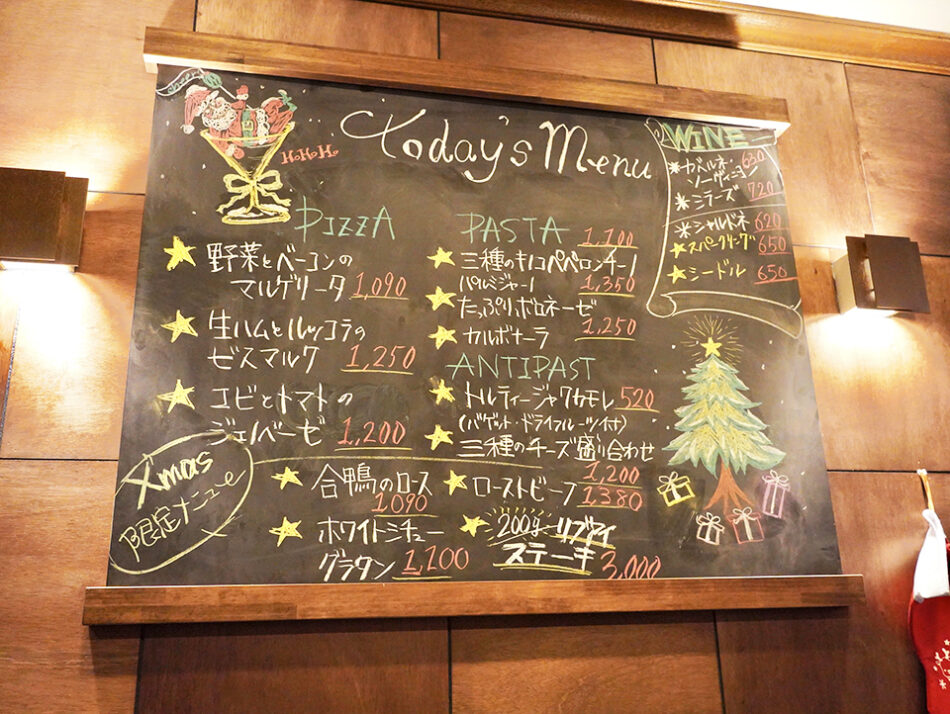 cheers
HoHoHo
Today's Menu
PIZZA
野菜とベーコンの
マルゲリータ 1,090
生ハムとルッコラの
ビスマルク 1,250
エビとトマトの
ジェノベーゼ 1,200
PASTA
1,100
三種のキノコペペロンチーノ
パルミジャーノ 1,350
たっぷりボロネーゼ
カルボナーラ 1,250
ANTIPAST
トルティージャワカモレ 520
(バゲット・ドライフルーツ付)
三種のチーズ盛り合わせ
1,200
WINE
*カベルネ・ 630
ソーヴィニヨン
*シラーズ 720
*シャルドネ 620
スパークリング 650
シードル 650
Xmas
限定メニュー
合鴨のロース
1090
ホワイトシチュー
グラタン 1,100
ローストビーフ 1380
200g リブアイ
ステーキ 3,000